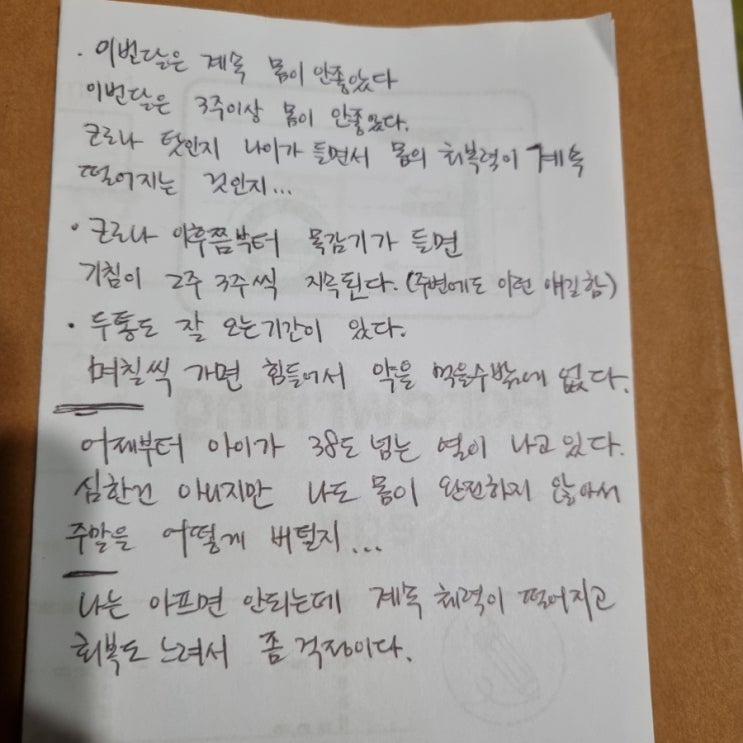 · 이번달은 계속 몸이 안좋았다
이번달은 3주이상 몸이 안좋았다.
코로나 탓인지 나이가 들면서 몸의 회복력이 계속
떨어지는 것인지...
· 코로나 이후쯤부터 목감기가 들면
기침이 2주 3주씩 지속된다. (주변에도 이런 얘길 함)
· 두통도 잘 오는기간이 있다.
며칠씩 가면 힘들어서 약을 먹을수밖에 없다.
어제부터 아이가 38도 넘는 열이 나고있다.
심한건 아니지만 나도 몸이 완전하지 않아서
주말을 어떻게 버틸지...
나는 아프면 안되는데 계속 체력이 떨어지고
회복도 느려서 좀 걱정이다.